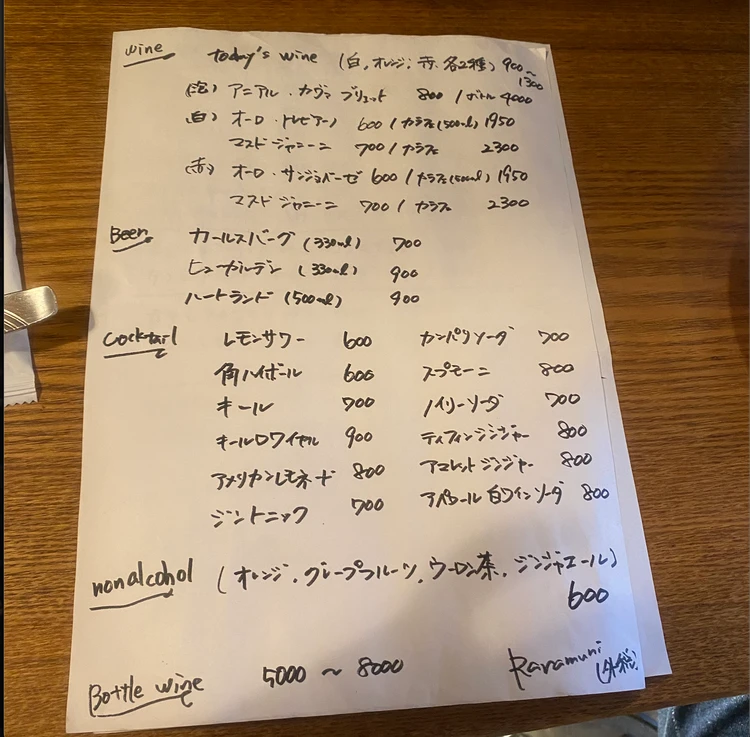 wine today's wine (白, オレンジ, 赤, 各2種) 900~1300
(泡) アニアル・カヴァ ブリュット 800 / ボトル 4000
(白) オーロ・トレビアーノ 600 / カラフェ(500ml) 1950
マスドジャニーニ 700 / カラフェ 2300
(赤) オーロ・サンジョベーゼ 600 / カラフェ(500ml) 1950
マスドジャニーニ 700 / カラフェ 2300
Beer カールスバーグ (330ml) 700
ヒューガルデン (330ml) 900
ハートランド (500ml) 900
cocktail レモンサワー 600 カンパリソーダ 700
角ハイボール 600 スプモーニ 800
キール 700 ノイリーソーダ 700
キールロワイヤル 900 ティフィンジンジャー 800
アメリカンレモネード 800 アマレットジンジャー 800
ジントニック 700 アペロール白ワインソーダ 800
nonalcohol (オレンジ, グレープフルーツ, ウーロン茶, ジンジャエール)
600
Bottle wine 5000 ~ 8000 (外税)